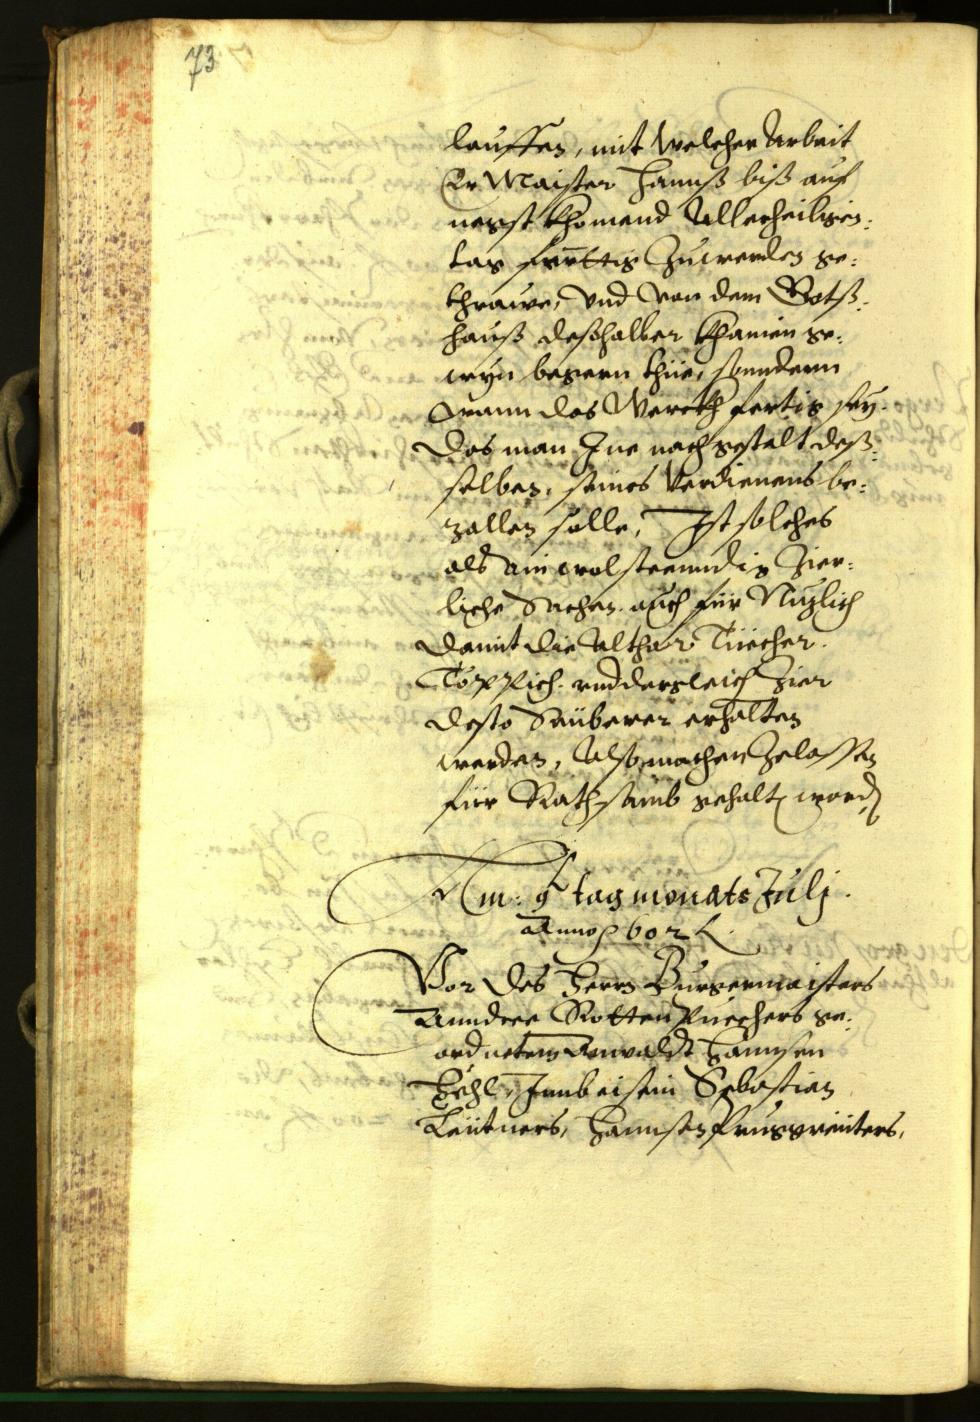 73
lauffen, mit welcher Arbait
Er Maister Hannß biß auf
negst khomend Allerheiligen:
tag ferttig Zuwerden ge:
thrawe, vnd von dem Gotß:
hauß deßhalber khainen ge:
wyn begern thüe, sonndern
wann das Werckh fertig sey.
das man Ine nach gestalt deß:
selben, seines Verdienens be:
zallen solle, Ist solches
als ain wolsteenndig Zier:
liche Sachen. auch für Nuzlich
damit die Althar Tüecher.
Töppich. vnd dergleich Zier
desto Säuberer erhalten
werden, Also machen Zelassen
für Rathsamb gehalt word
Am: 9 tag monats Julj.
Anno 602
Vor des Herrn Burgermaisters
Anndree Rottenpuechers ge:
ordnetem Anwaldt Hannsen
Hehl, In beisein Sebastian
Leütners, Hannsen Prugreüters,